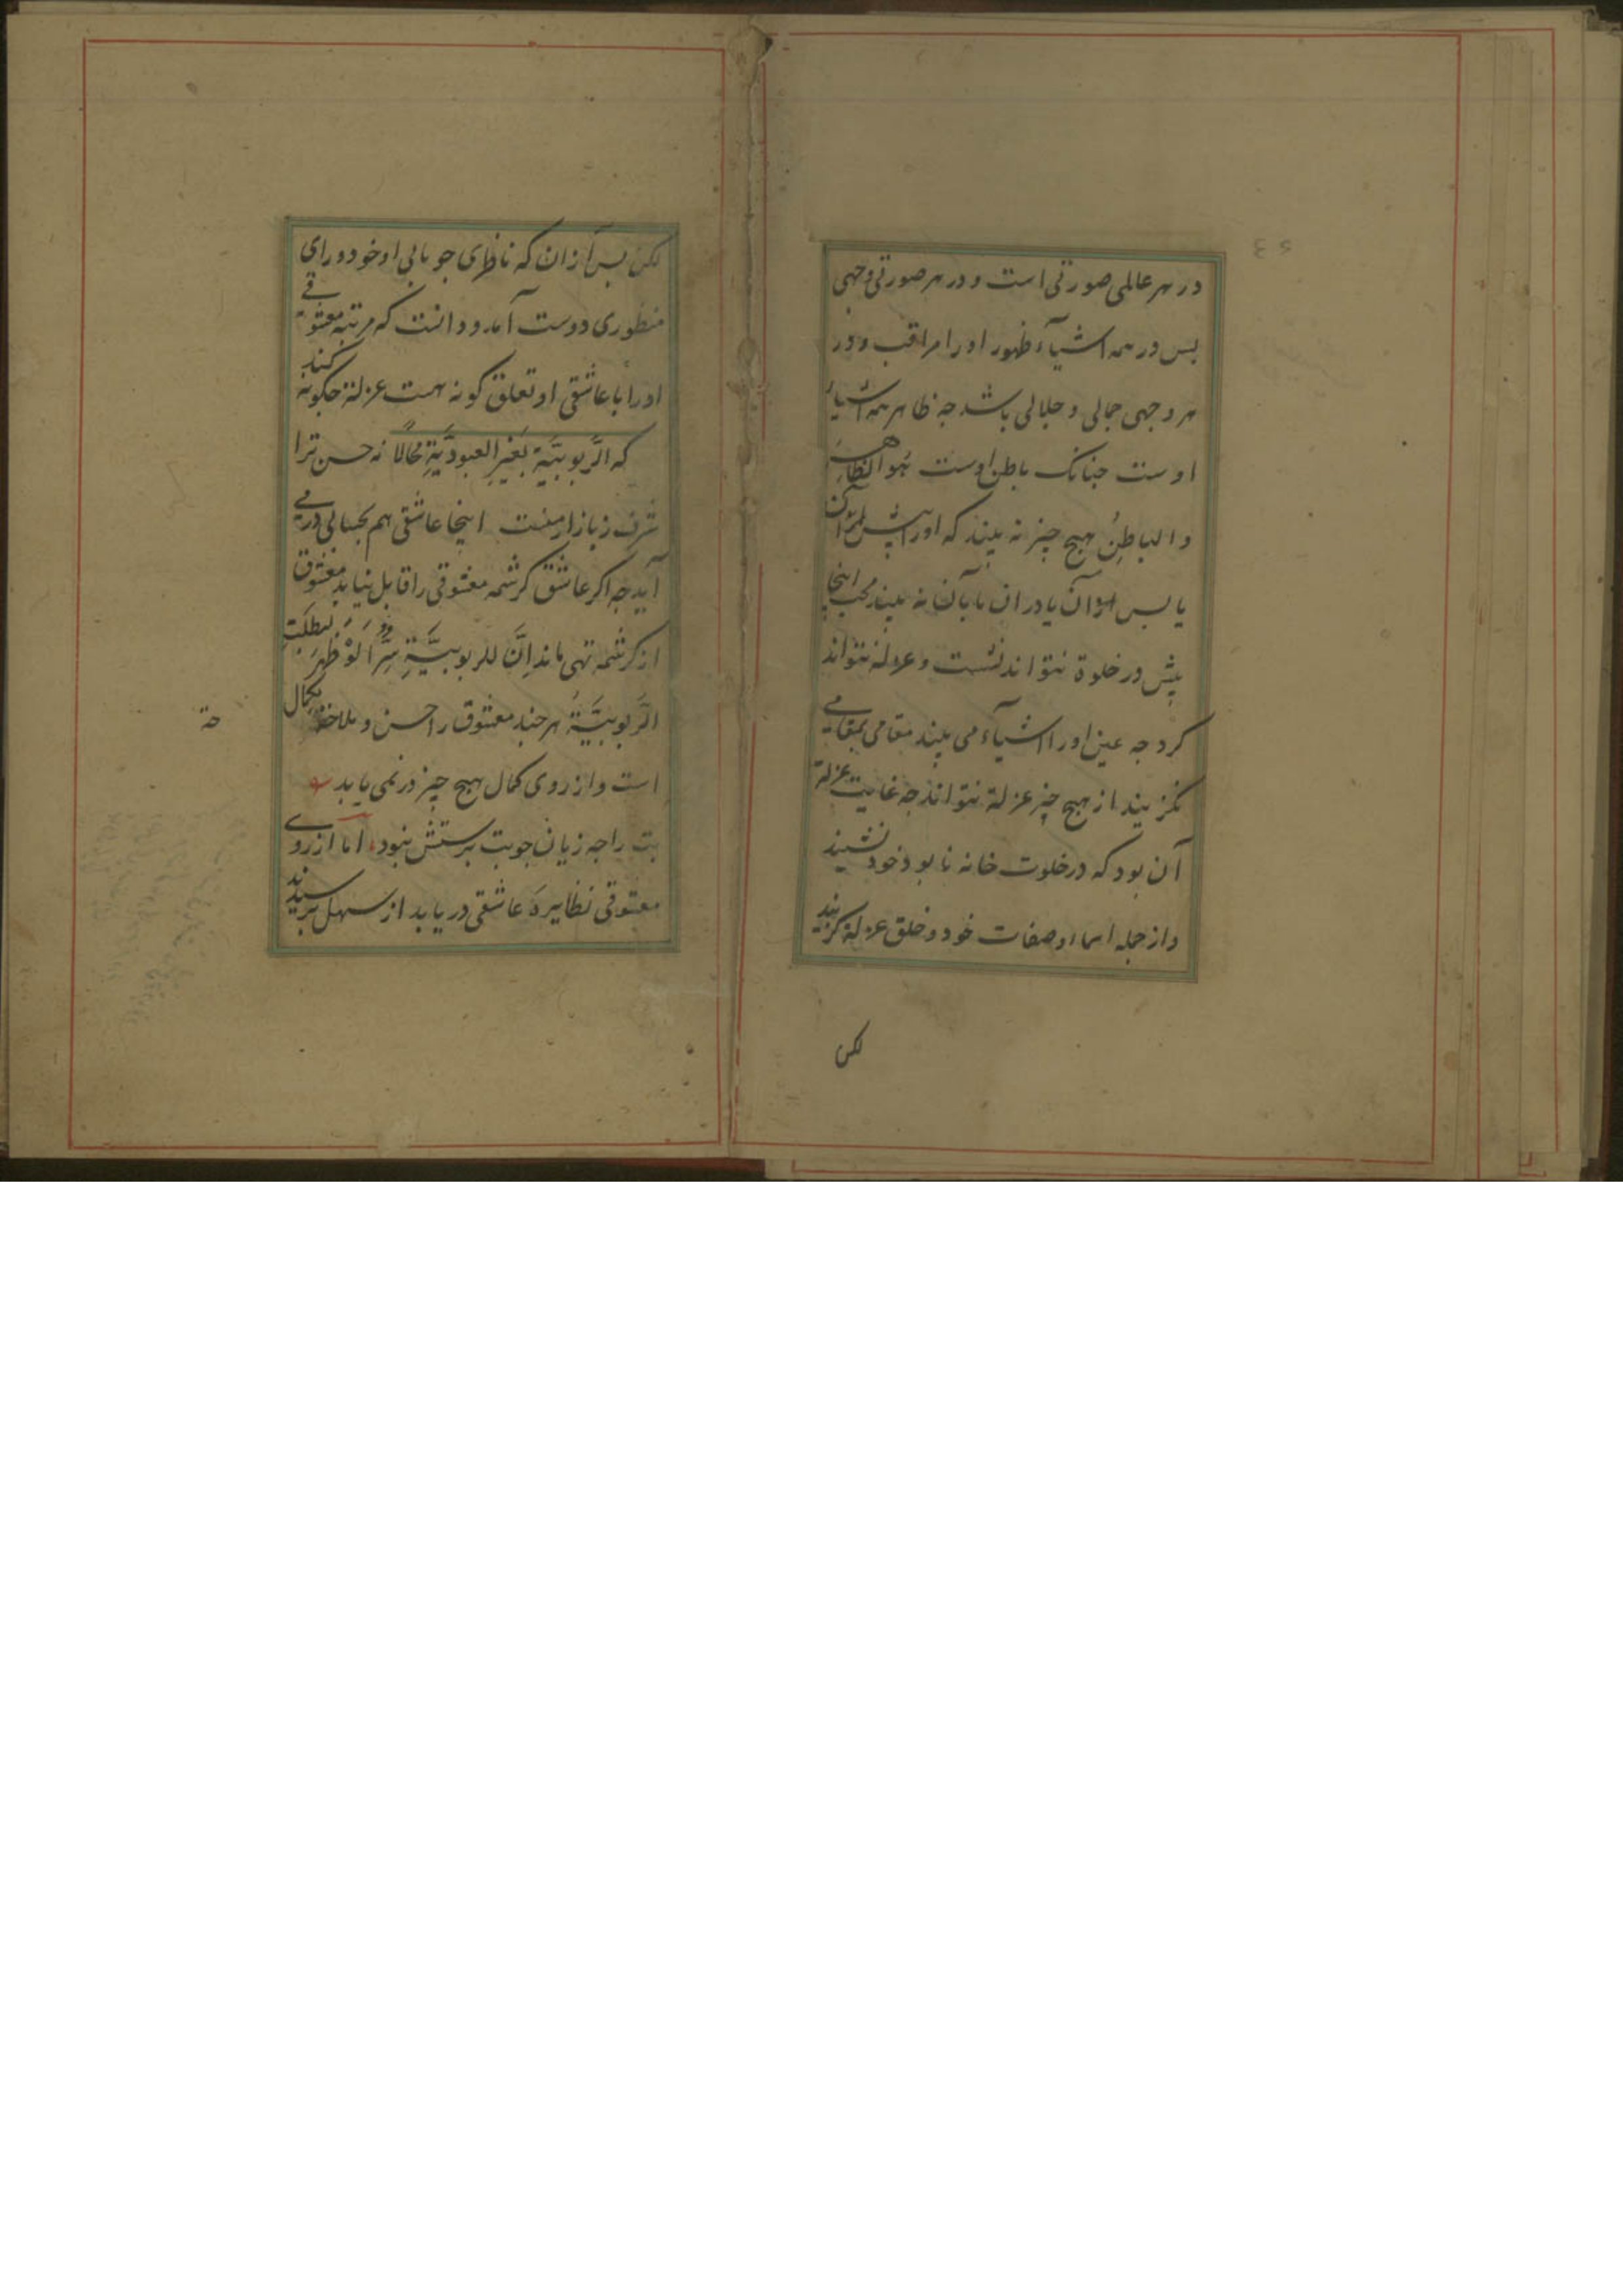 در هر عالمی صورتی است و در هر صورتی وجهی
بس در همه اشیآء ظهور او را مراقب و در
هر وجهی جمالی و جلالی باشد جه ظاهر همه اشیاء
اوست جنانک باطن اوست هُوَ الظاهِرُ
و الباطِنُ هیچ چیز نه بیند که او را پیش از آن
یا بس از آن یا در آن یا با آن نه بیند محب اینجا
پیش در خلوة نتواند نشست و عزلة نتواند
کرد جه عین او را اشیآء می بیند مقامی بمقامی
نگزیند از هیچ چیز عزلة نتواند جه غایت عزلة
آن بود که در خلوت خانه نابود خود نشیند
و از جمله اسما و صفات خود و خلق عزلة گزیند
لکن
لکن بس از ان که ناظرای جو بانی او خود ورای
منظوری دوست آمد و دانست که مرتبه معشوقی
او را با عاشقی او تعلق گونه هست عزلة جگونه کند
که الرَّبوبیَّة بغَیرِ العبودیَّةِ محالًا نه حسن ترا
شرف ز بازار منست اینجا عاشقی هم بحسابی در می
آید جه اگر عاشق کرشمه معشوقی را قابل نیاید معشوق
از کرشمه تهی ماند اِنَّ للربوبیَّةِ سِرًّا لوْ ظهَرَ لبَطلَتِ
الرَّبوبیَّةُ هر جند معشوق را حسن و ملاحة بکمال
است و از روی کمال هیچ چیز در نمی یابد
بت را جه زیان جو بت برستش نبود اما از روی
معشوقی نظاره عاشقی در یابد از سهل برسیدند
حة